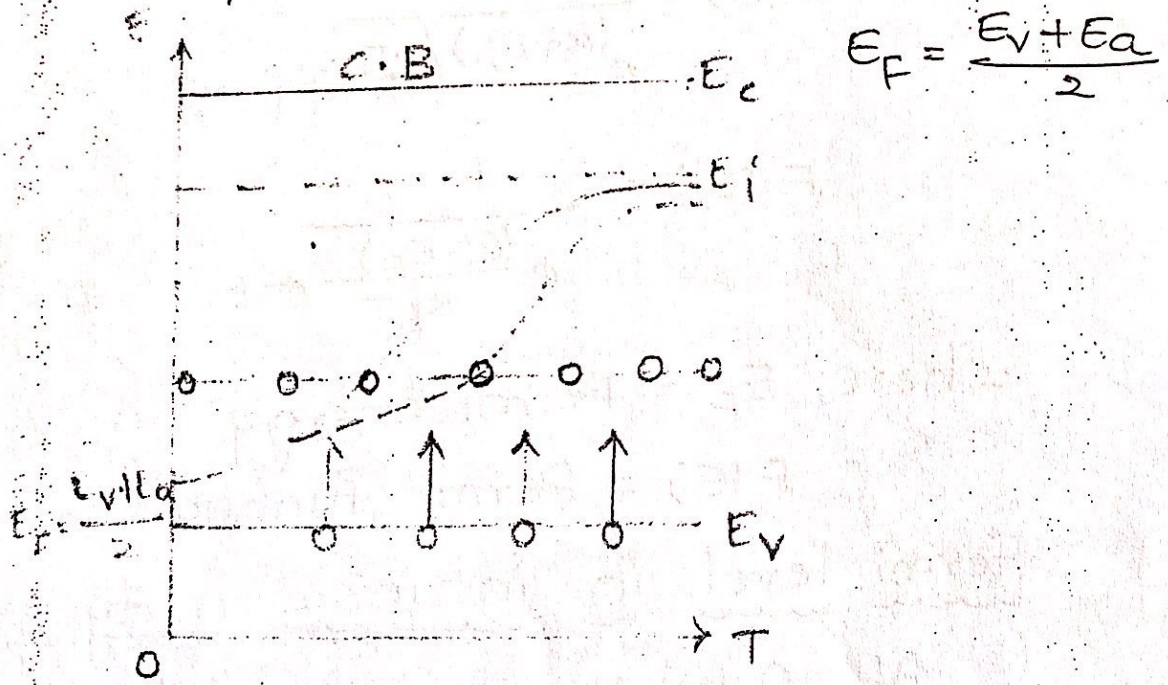 E
C.B
E_c
E_F = \frac{E_v + E_a}{2}
E_i
E_F = \frac{E_v + E_a}{2}
E_v
0
T